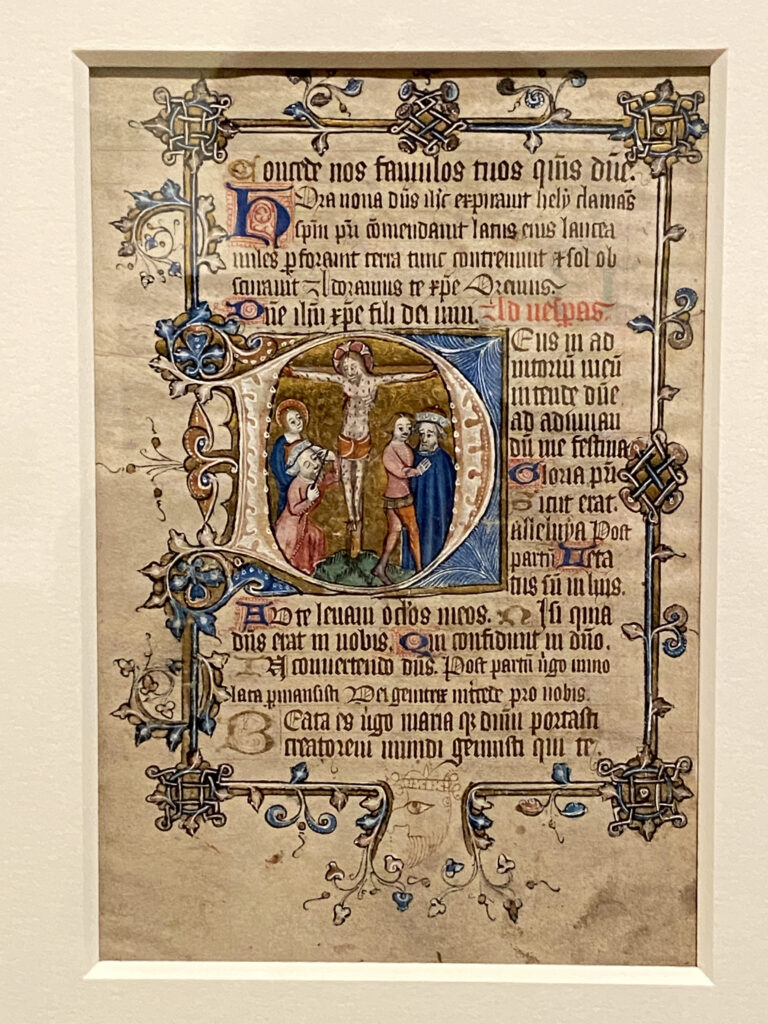 Concede nos famulos tuos qm̄s dn̄e.
Hora nona dn̄s ih̄c expirauit hely clamās
sp̄m pr̄i cōmendauit latus eius lancea
miles pforauit terra tunc contremuit ⁊ sol ob
scurauit Adoramus te xp̄e Oremus.
Dn̄e ih̄u xp̄e fili dei uiui. Ad uesp̄as.
Deus in ad
iutoriū meū
intende dn̄e
ad adiuuan
dū me festina
Gloria pr̄i
Sicut erat.
alleluya Post
partū Leta
tus sū in hijs.
AD te leuaui oclōs meos. Nisi quia
dn̄s erat in nobis. Qui confidunt in dn̄o.
IN conuertendo dn̄s. Post partū ūgo inuio
lata pmansisti Dei genitrix īt̄cede pro nobis.
BEata es ūgo maria q̄ dn̄m portasti
creatorem mundi genuisti qui te